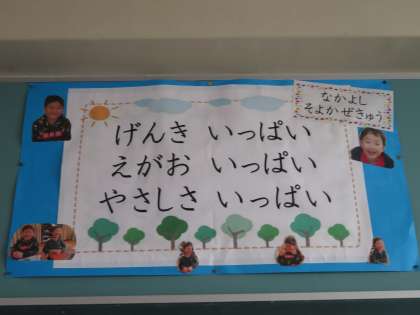 なかよし
そよかぜきゅう
げんき いっぱい
えがお いっぱい
やさしさ いっぱい